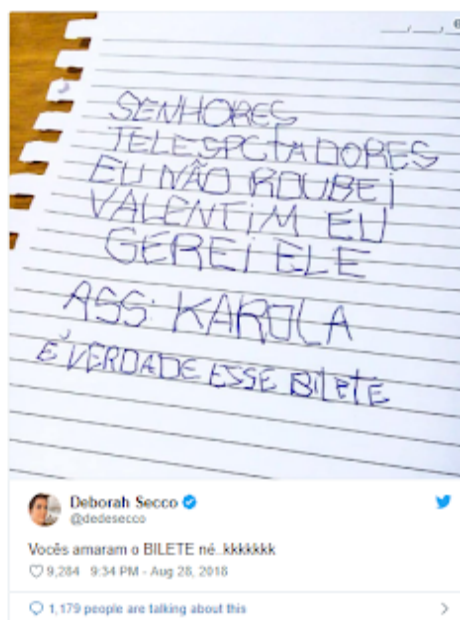 __/__/__
SENHORES
TELESPCTADORES
EU NÃO ROUBEI
VALENTIM EU
GEREI ELE
ASS: KAROLA
É VERDADE ESSE BILETE
Deborah Secco
@dedesecco
Vocês amaram o BILETE né..kkkkkkk
9,284 9:34 PM - Aug 28, 2018
1,179 people are talking about this